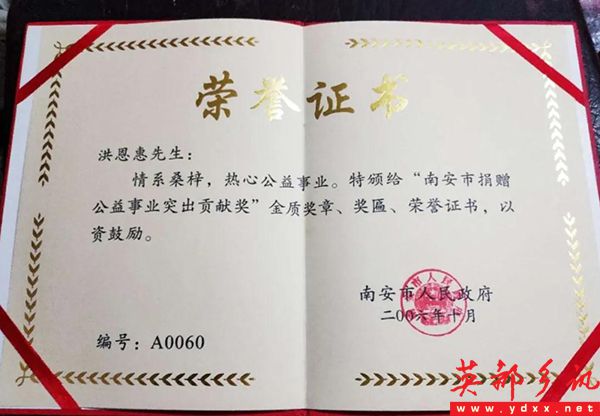 荣誉证书
洪恩惠先生：
情系桑梓，热心公益事业。特颁给“南安市捐赠
公益事业突出贡献奖”金质奖章、奖匾、荣誉证书，以
资鼓励。
南安市人民政府
二00六年十月
编号：A0060
英都乡讯
www.ydxx.net